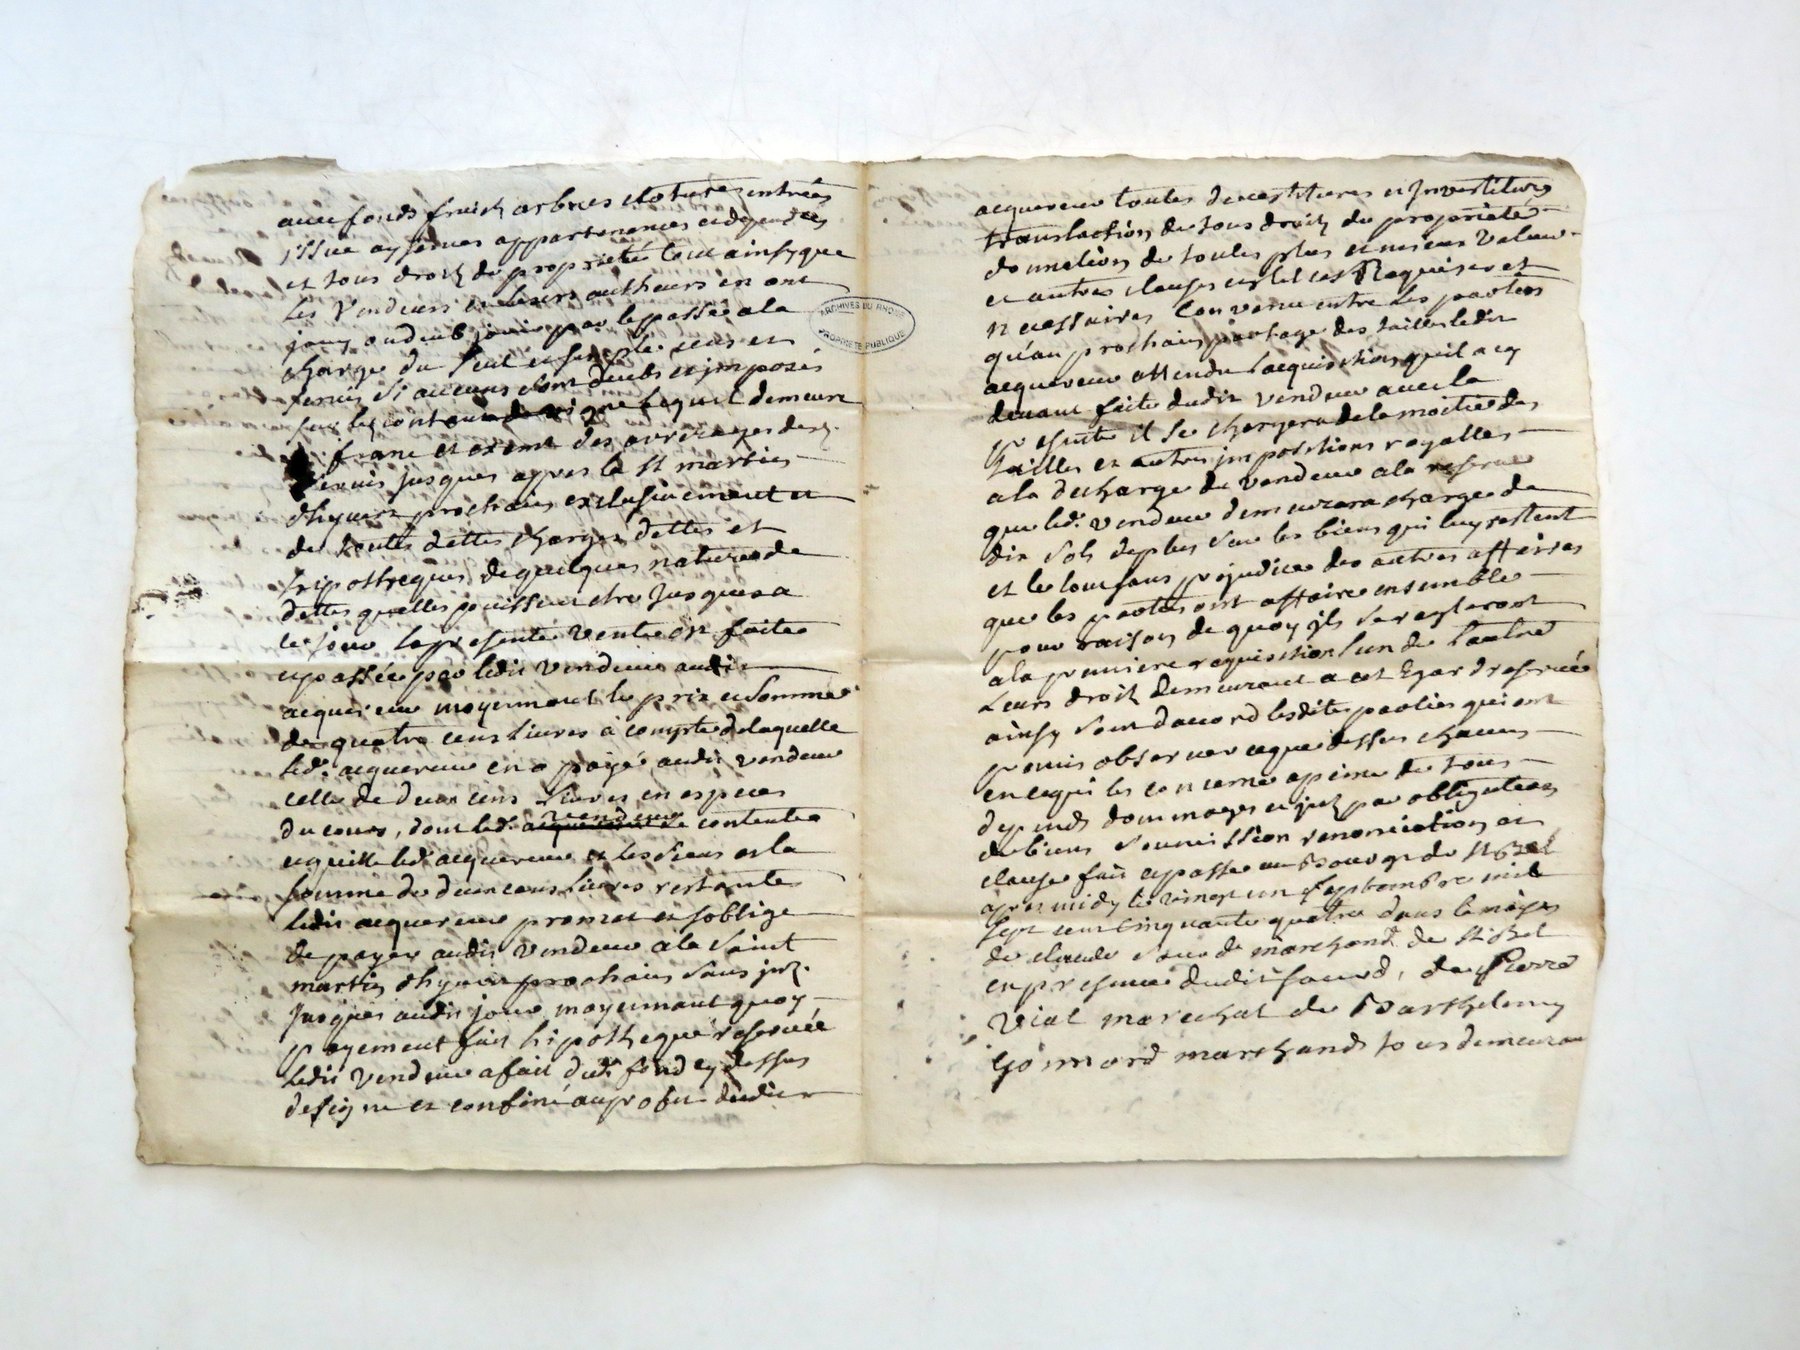 avec fonds fruits arbres cloture entrées
issue aysemes appartenances et dependces
et tous droits de proprieté tout ainsy que
les Vendeurs et leurs autheurs en ont
jouy ou deub jouir par le passé a la
charge du seul et simple cens et
servis si aucuns sont deubs et imposés
sur lequel demeure
franc et exemt des arrerages desd.
servis jusques appres la st martin
dhyvert prochain exclusivement et
de toutes dettes charges dettes et
hipotheques de quelques natures de
dettes quelles puissent etre jusques a
ce jour la presente vente est faite
et passée par ledit vendeur audit
acquereur moyennant le prix et somme
de quatre cens livres a compte de laquelle
led. acquereur en a payé audit vendeur
celle de deux cens livres en especes
du cours, dont led. acquereur vendeur se contente
et quitte led. acquereur et les siens et la
somme de deux cens livres restante
ledit acquereur promet et soblige
de payer audit vendeur a la Saint
martin dhyver prochain sans jnt.
jusques audit jour moyennant quoy
payement fait hipotheque reservée
ledit vendeur a fait dud. fond cy dessus
designé et confiné au profit dudit
ARCHIVES DU RHONE
PROPRIETE PUBLIQUE
acquereur toutes devestitures et Jnvestitures
translation de tous droits de proprieté
donnation de toutes plus et mieux value
et autres clauses utiles Requises et
necessaires Convenu entre les parties
qu'au prochain partage des tailles ledit
acquereur attendu lacquisition quil a cy
devant faite dudit vendeur avec la
presente il se chargera de la moitié des
tailles et autres jmpositions royalles
a la decharge du vendeur a la reserve
que led. vendeur demeurera chargé de
dix sols de plus sur les biens qui luy restent
et le tout sans prejudice des autres affaires
que les parties ont affaire ensemble
pour raison de quoy jls se regleront
a la premiere requisition lun de lautre
Leurs droits demeurant a cet Egard reservés
ainsy sont daccord lesdites parties qui ont
promis observer ce que dessus chacun
en ce qui les concerne a peine de tous
depends dommages et jnts par obligation
de biens soumission renonciation et
clause fait et passé au Bourg de St Bel
apres midy le vingt un septembre mil
sept cent cinquante quatre dans la maison
de claude marchand de St Bel
en presence dudit , de Pierre
Vial marechal de Barthelemy
Gonnard marchands tous demeurant